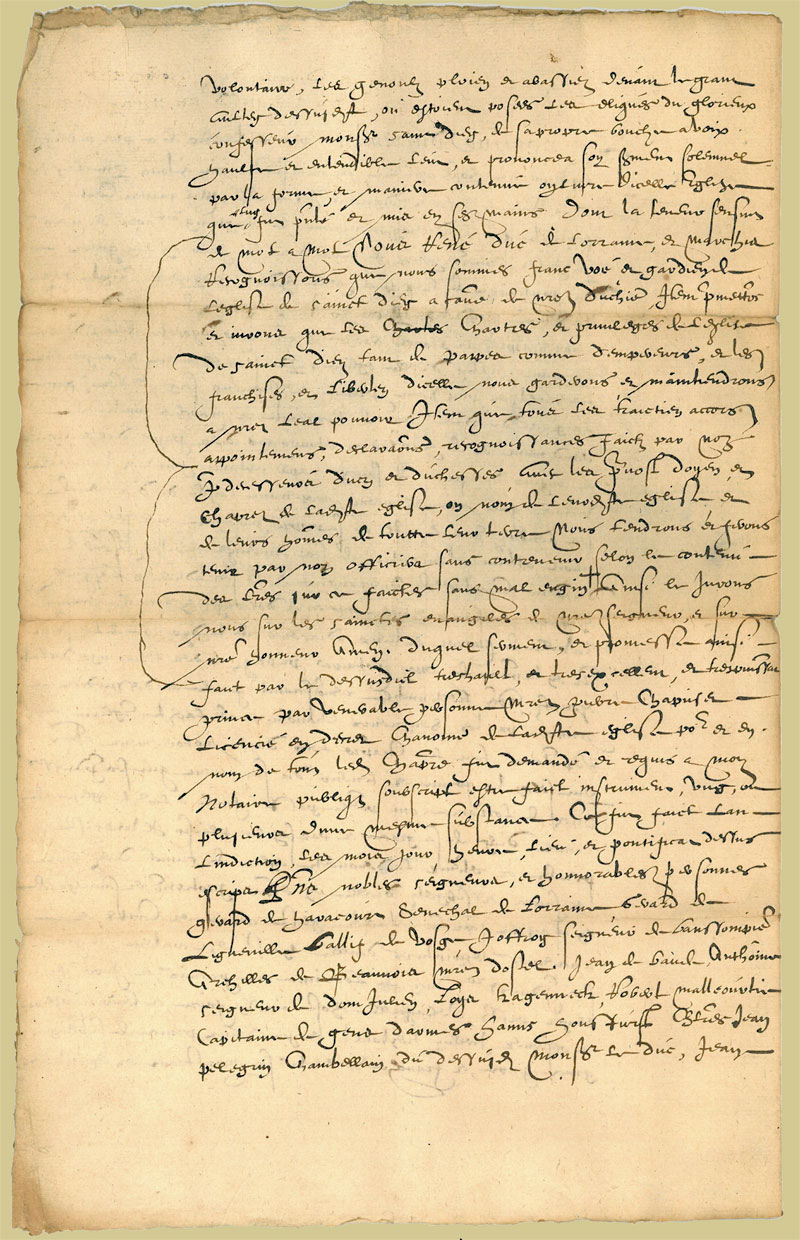 volontaire, les genoulz ploiez et abassiez devant le grant
aultez dessusdit, où estoient posees les reliques du glorieux
confesseur monsr sainct diez, de sa propre bouche a voix
haulte et entendible leut, et prononcea son serment solemnel
par la forme, et maniere contenue on livre dicelle Eglise
que luy fut pnté et mis en ses mains dont la teneur sensuit
de mot a mot Nous René duc de Lorraine, et marchis
Recognoissons que nous sommes franc voé et gardien de
Leglise de sainct diez a cause de nre duchié Item pmettons
et jurons que les Chartres, et privileges de leglise
de sainct diez tant de pappes comme d'empereurs, et les
franchises, et libertez dicelle nous garderons et maintiendrons
a nre leal pouvoir Item que tous les traictiez accors
appointemens, declaraons, recognoissances faictz par noz
Pdecesseurs ducz et duchesses avec les Pvost doyen et
Chapre de ladite eglise, on nom de leurdite eglise et
de leurs hômes de toutte leur terre Nous tendrons et ferons
tenir par noz officiers sans contrevenir selon le contenu
des lres sur ce faictes sans mal engin Ainsi le jurons
nous sur les sainctes euangiles de nre seigneur, et sur
nre honneur Amen. Duquel serment, et promesse ainsi
faict par le dessusdit treshault, et tresexcellent, et trespuissant
prince par venerable personne mre pierre
Licencié en decret Chanoine de ladite eglise por et en
nom de tout ledit Chapre fut demandé et requis a moy
Notaire publique soubscript estre faict instrument, ung, ou
plusieurs d'une mesme substance Ce fut faict lan
Lindiction, les mois, jour, heure, lieu, et pontificat dessus
escrips Pns nobles seigneurs, et honnorables personnes
gerard de haracourt Seneschal de Lorraine Gerard de
Ligneville Ballif de Vosge Joffroy seigneur de bassompiere
Archilles de Beauvoir mre dostel. Jean de baude, Anthoine
seigneur de dom Julien, Loys hagenneck, Robert
Capitaine de gens darmes hanus Jean
pelegrin Chambellain du dessusdit monsr le duc, Jean